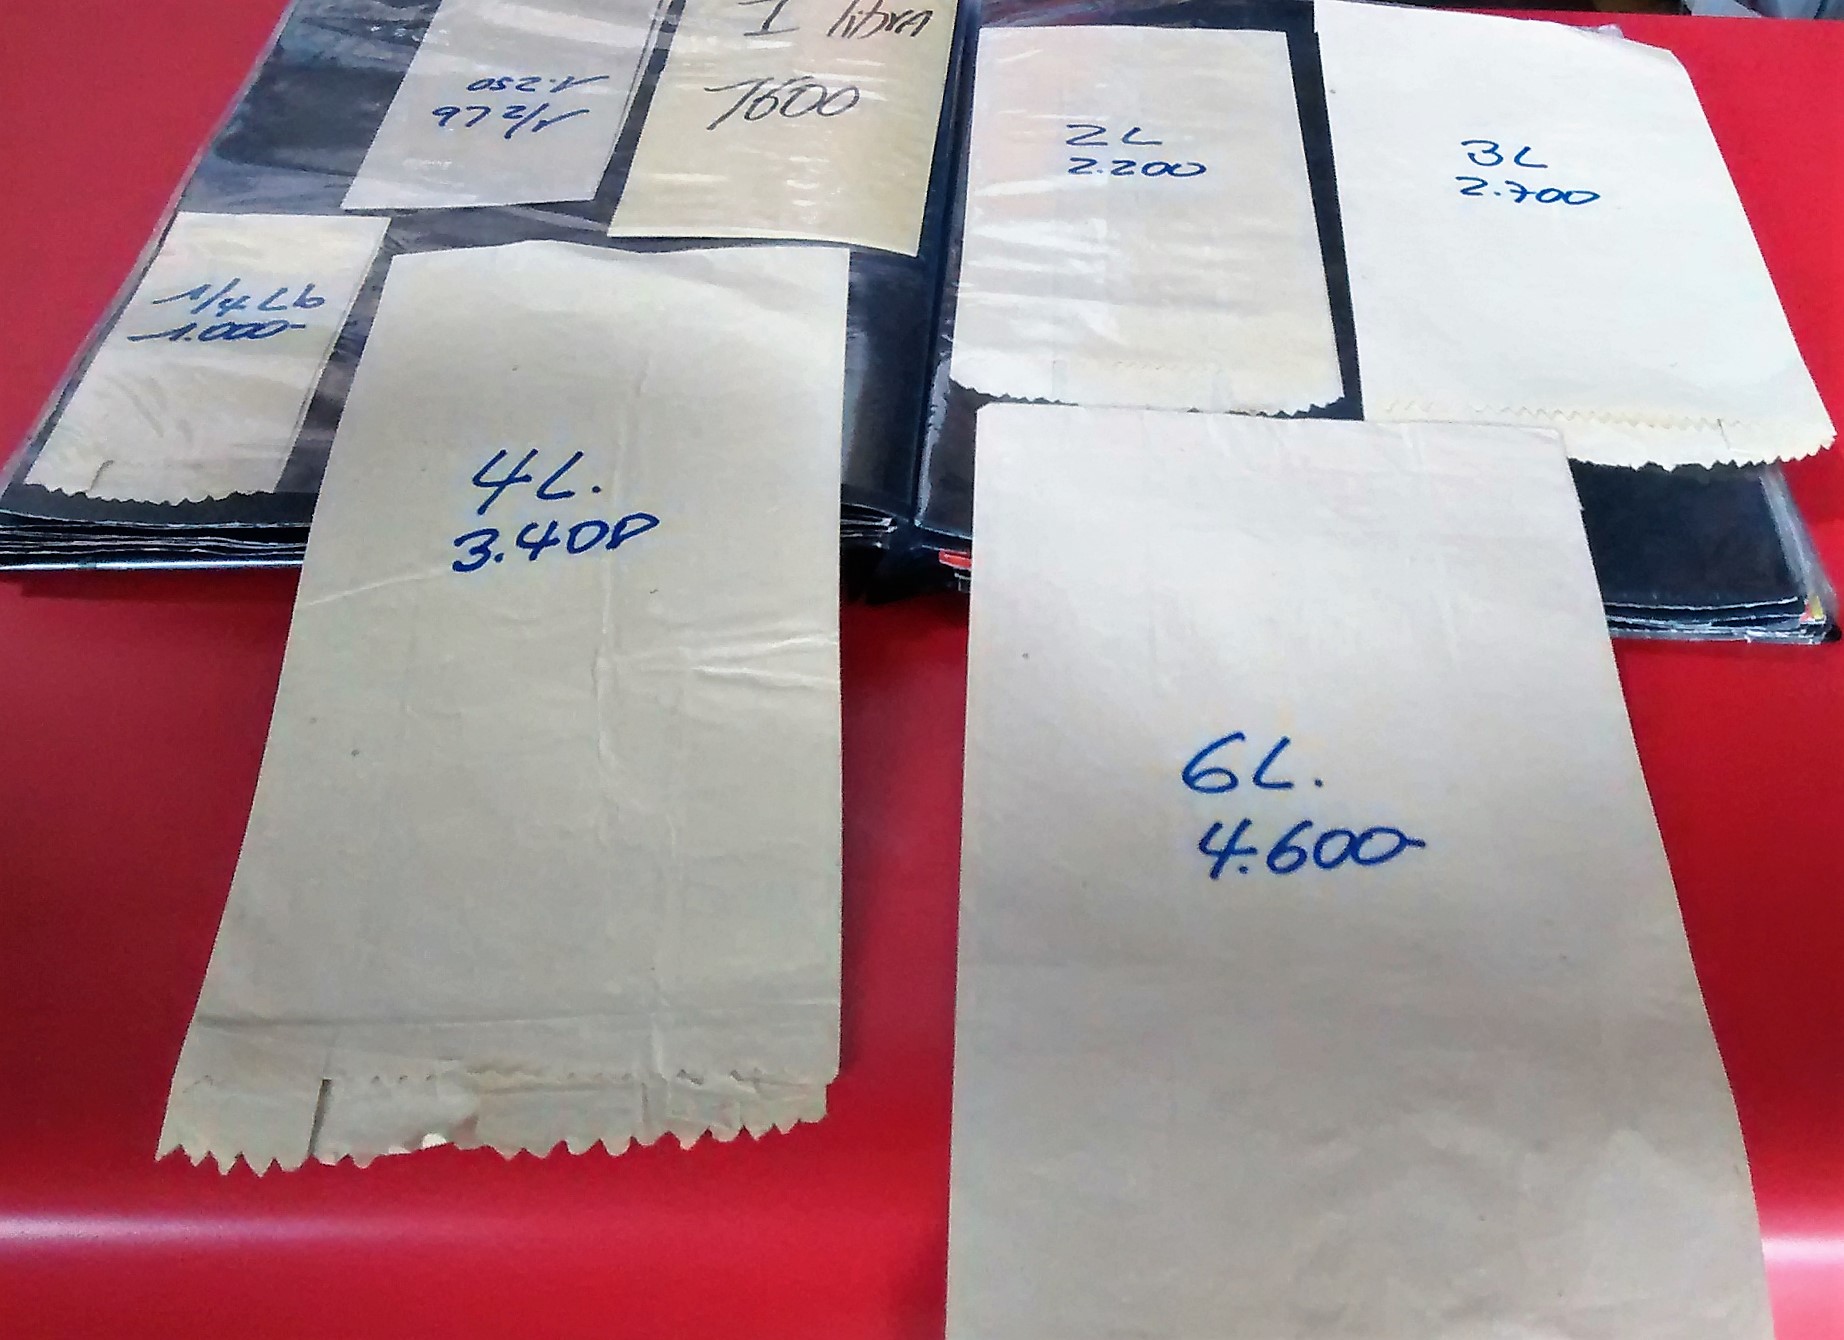 1/2 Lb
1.250
1 libra
1600
2L
2.200
3L
2.700
1/4 Lb
1.000-
4L.
3.400
6L.
4.600-